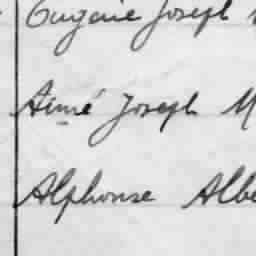 Eugénie Joseph
Aimé Joseph M
Alphonse Albe